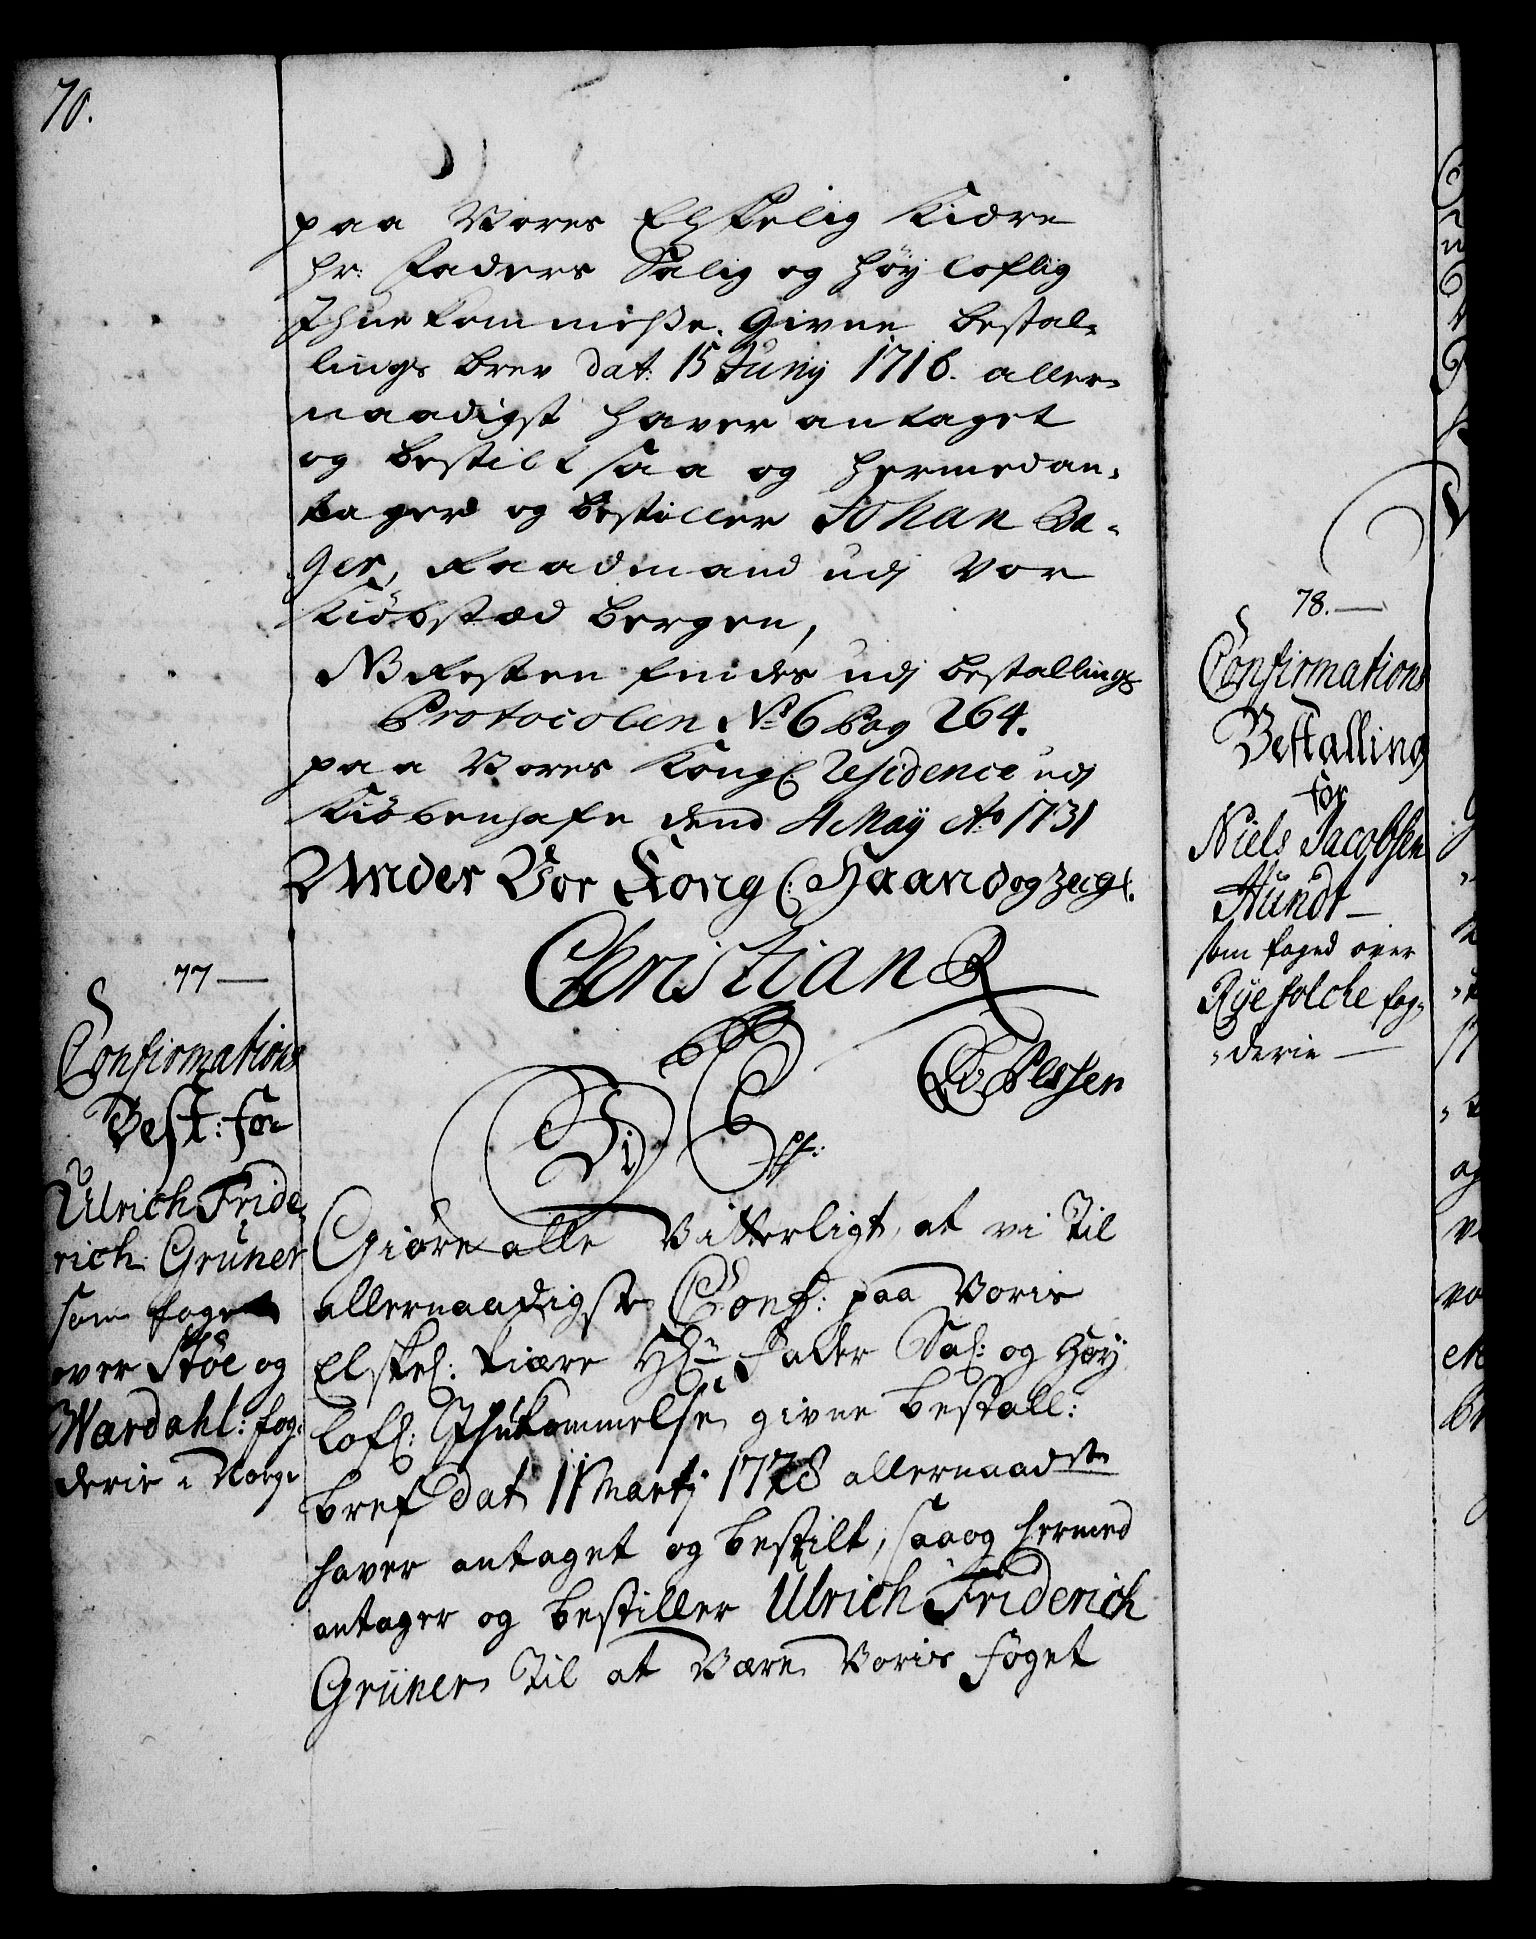 70.
paa Vores Elskelig Kiære
Hr: Faders Salig og Høyloflig
Ihuekommelse. Givne Bestal-
lings Brev dat: 15 Juny 1716. aller-
naadigst haver antaget
og bestilt saa og hermed an-
tager og bestiller Johan Ba-
ger, Raadmand udj Vor
Kiøbstæd Bergen,
NB Resten findes udj bestallings
Protocolen No 6 Pag 264.
paa Vores Kongl: Residence udj
Kiøbenhafn dend 4 May Ao 1731
Under Vor Kongl: Haand og Zeigl.
Christian R
CA v Plessen
77
Confirmations
Best: for
Ulrich Fride-
rich Grüner
som foged
over Støe og
Wardahl: fog-
derie i Norge
Vi C 6te pp:
Giøre alle Vitterligt, at vi Til
allernaadigste Conf: paa Voris
Elskel: kiære Hr Fader Sal: og Høy
Lofl: Ihukommelse givne bestall:
bref dat 11 Martj 1728 allernaadste
haver antaget og bestilt, saa og hermed
antager og bestiller Ulrich Friderich
Grüner Til at Være Voris foget
78.
Confirmations
Bestalling
for
Niels Jacobsen
Hundt
som foged over
Ryefolcke fog-
derie